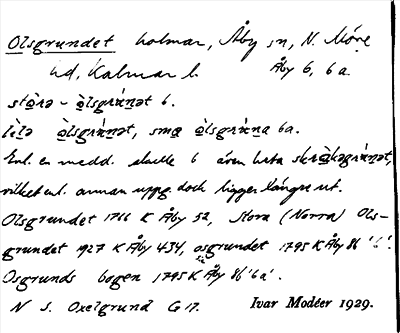 Olsgrundet holmar, Åby sn, N. Möre
hd, Kalmar l. Åby 6, 6a.
sto̱rə - ò̱lsgrɯn̄ət 6.
lìlə ò̱lsgrɯn̄ət, smɑ ò̱lsgrɯn̄a 6a.
Enl. en medd. skulle 6 även heta skrà̱kəgrɯn̄ət,
vilket enl. annan uppg. dock ligger längre ut.
Olsgrundet 1766 K Åby 52, Stora (Norra) Ols-
grundet 1927 K Åby 434, osgrundet 1795 K Åby 86 '6'.
Osgrunds bogen 1795 K Åby 86 '6a'.
N S. Oxelgrund G 17. Ivar Modéer 1929.